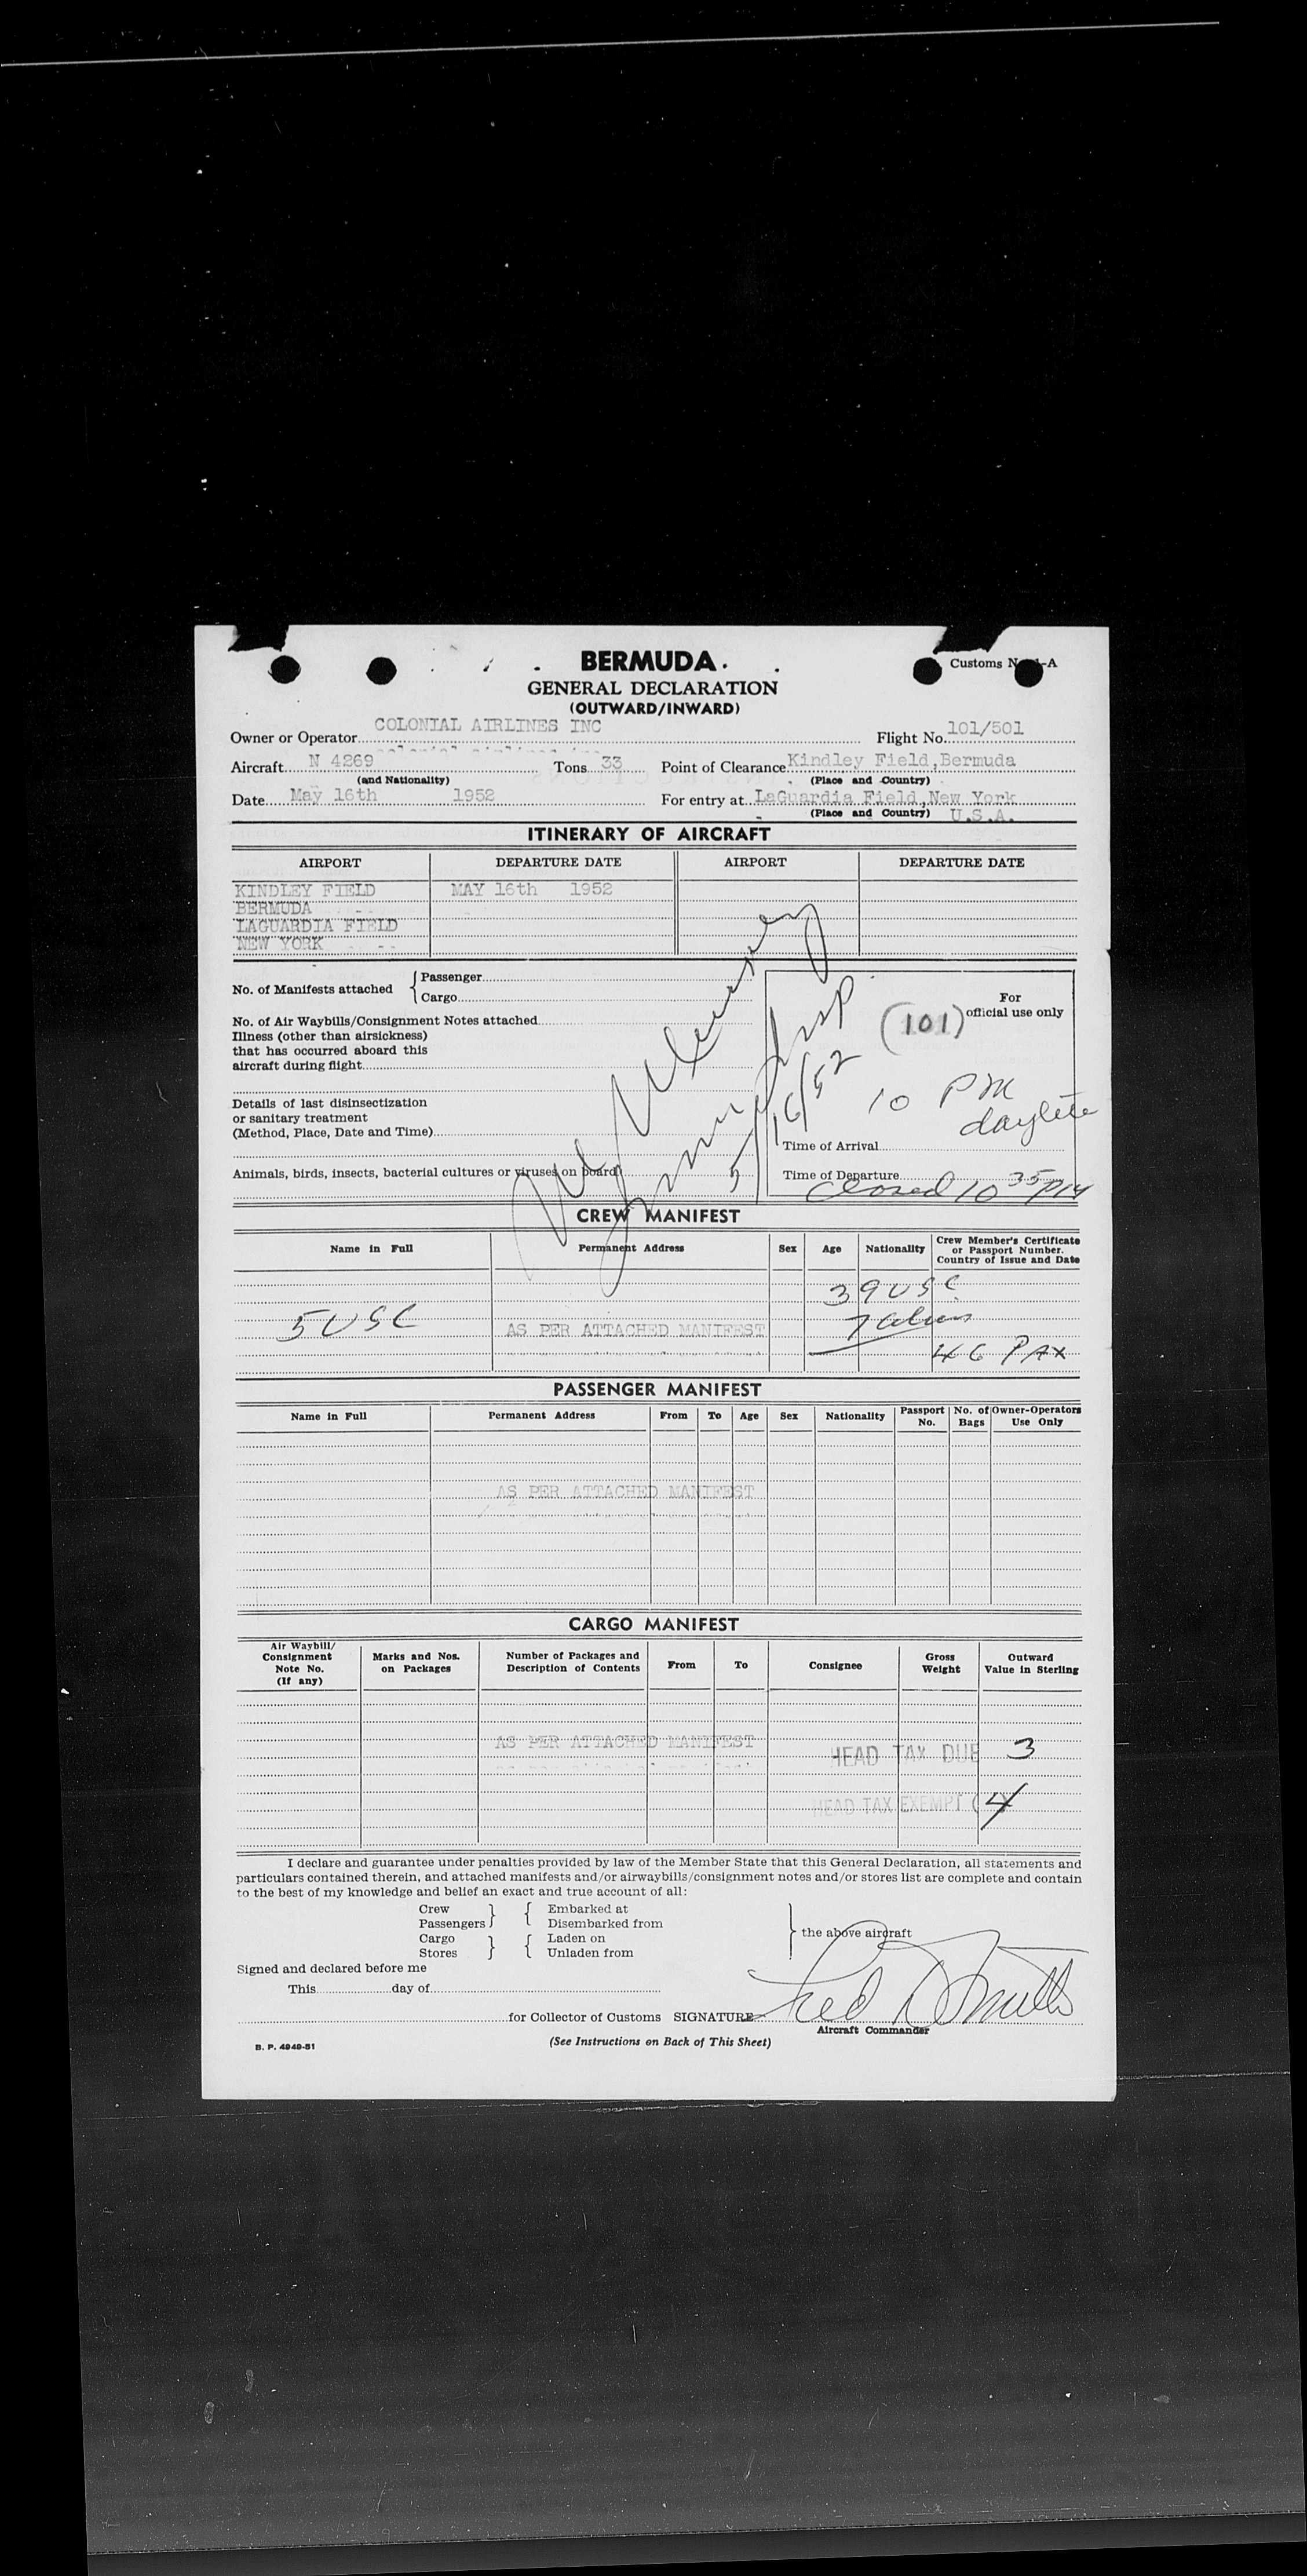 BERMUDA.
Customs N -A
GENERAL DECLARATION
(OUTWARD/INWARD)
Owner or Operator COLONIAL AIRLINES INC Flight No. 101/501
Aircraft N 4269 Tons 33 Point of Clearance Kindley Field, Bermuda
(and Nationality) (Place and Country)
Date May 16th 1952 For entry at LaGuardia Field, New York
(Place and Country) U.S.A.
ITINERARY OF AIRCRAFT
AIRPORT DEPARTURE DATE AIRPORT DEPARTURE DATE
KINDLEY FIELD MAY 16th 1952
BERMUDA
LAGUARDIA FIELD
NEW YORK
No. of Manifests attached { Passenger
Cargo
For
official use only
(101)
No. of Air Waybills/Consignment Notes attached
Illness (other than airsickness)
that has occurred aboard this
aircraft during flight
Details of last disinsectization
or sanitary treatment
(Method, Place, Date and Time)
Animals, birds, insects, bacterial cultures or viruses on board
Immr Insp
5/16/52
10 PM
daylite
Time of Arrival
Time of Departure
Closed 10 35 PM
CREW MANIFEST
Name in Full Permanent Address Sex Age Nationality Crew Member's Certificate
or Passport Number.
Country of Issue and Date
39 USC
5 USC AS PER ATTACHED MANIFEST 7 aliens
46 PAX
PASSENGER MANIFEST
Name in Full Permanent Address From To Age Sex Nationality Passport No. No. of Bags Owner-Operators Use Only
AS PER ATTACHED MANIFEST
CARGO MANIFEST
Air Waybill/
Consignment
Note No.
(If any)
Marks and Nos.
on Packages
Number of Packages and
Description of Contents
From To Consignee
Gross
Weight
Outward
Value in Sterling
AS PER ATTACHED MANIFEST
HEAD TAX DUE 3
HEAD TAX EXEMPT ( 4
I declare and guarantee under penalties provided by law of the Member State that this General Declaration, all statements and
particulars contained therein, and attached manifests and/or airwaybills/consignment notes and/or stores list are complete and contain
to the best of my knowledge and belief an exact and true account of all:
Crew } { Embarked at
Passengers Disembarked from
Cargo } { Laden on
Stores Unladen from
} the above aircraft
Signed and declared before me
This day of
for Collector of Customs SIGNATURE Fred D Smith
Aircraft Commander
(See Instructions on Back of This Sheet)
B. P. 4949-51